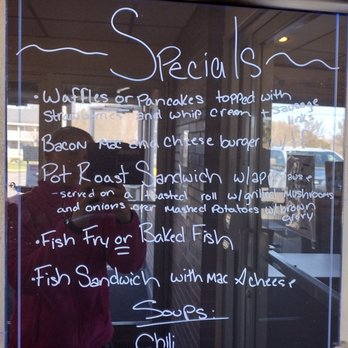 Specials
• Waffles or Pancakes topped with
strawberries and whip cream + sausage
links
Bacon Mac and cheese burger
Pot Roast Sandwich w/
- served on a toasted roll w/ grilled mushrooms
and onions over mashed potatoes w/ brown
gravy
• Fish Fry or Baked Fish
• Fish Sandwich with Mac & cheese
Soups:
Chili